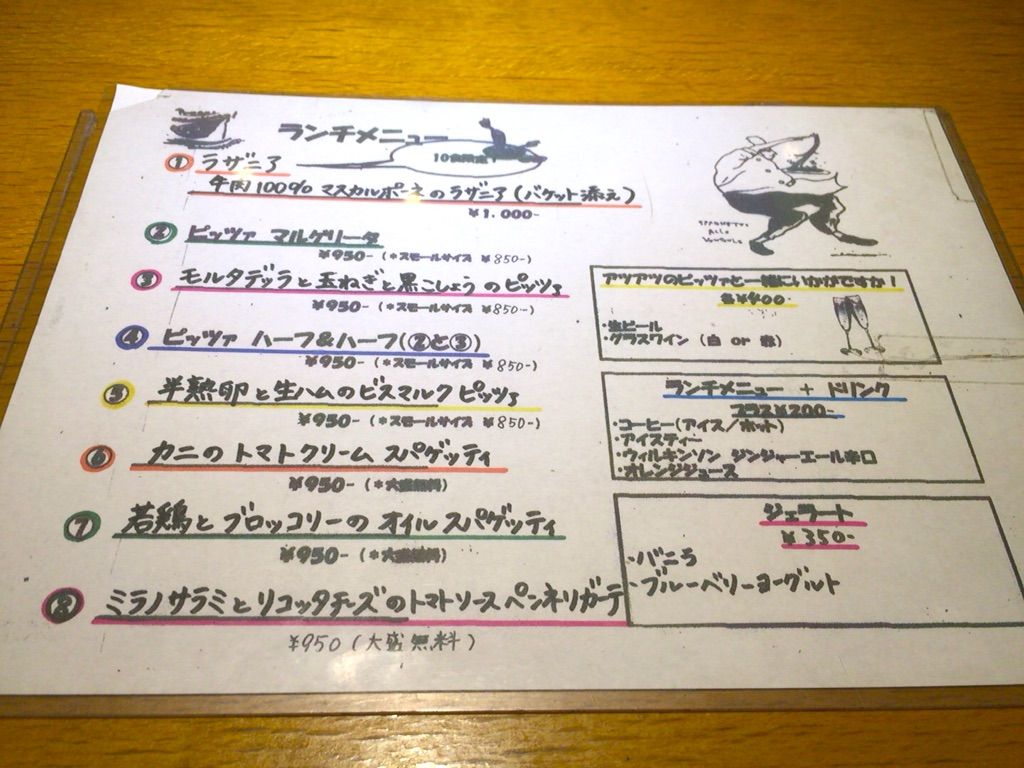 ランチメニュー
① ラザニア
牛肉100% マスカルポーネのラザニア(バケット添え)
¥1.000-
② ピッツァ マルゲリータ
¥950- (*スモールサイズ ¥850-)
③ モルタデッラと玉ねぎと黒こしょうのピッツァ
¥950- (*スモールサイズ ¥850-)
④ ピッツァ ハーフ&ハーフ(②と③)
¥950- (*スモールサイズ ¥850-)
⑤ 半熟卵と生ハムのビスマルク ピッツァ
¥950- (*スモールサイズ ¥850-)
⑥ カニのトマトクリーム スパゲッティ
¥950- (*大盛無料)
⑦ 若鶏とブロッコリーのオイルスパゲッティ
¥950- (*大盛無料)
⑧ ミラノサラミとリコッタチーズのトマトソースペンネリガーテ
¥950 (大盛無料)
SPAGHETTI
ALLE
VONGOLE
アツアツのピッツァと一緒にいかがですか!
各¥400-
・生ビール
・グラスワイン (白 or 赤)
ランチメニュー + ドリンク
プラス¥200-
・コーヒー(アイス/ホット)
・アイスティー
・ウィルキンソン ジンジャーエール辛口
・オレンジジュース
ジェラート
¥350-
・バニラ
・ブルーベリーヨーグルト